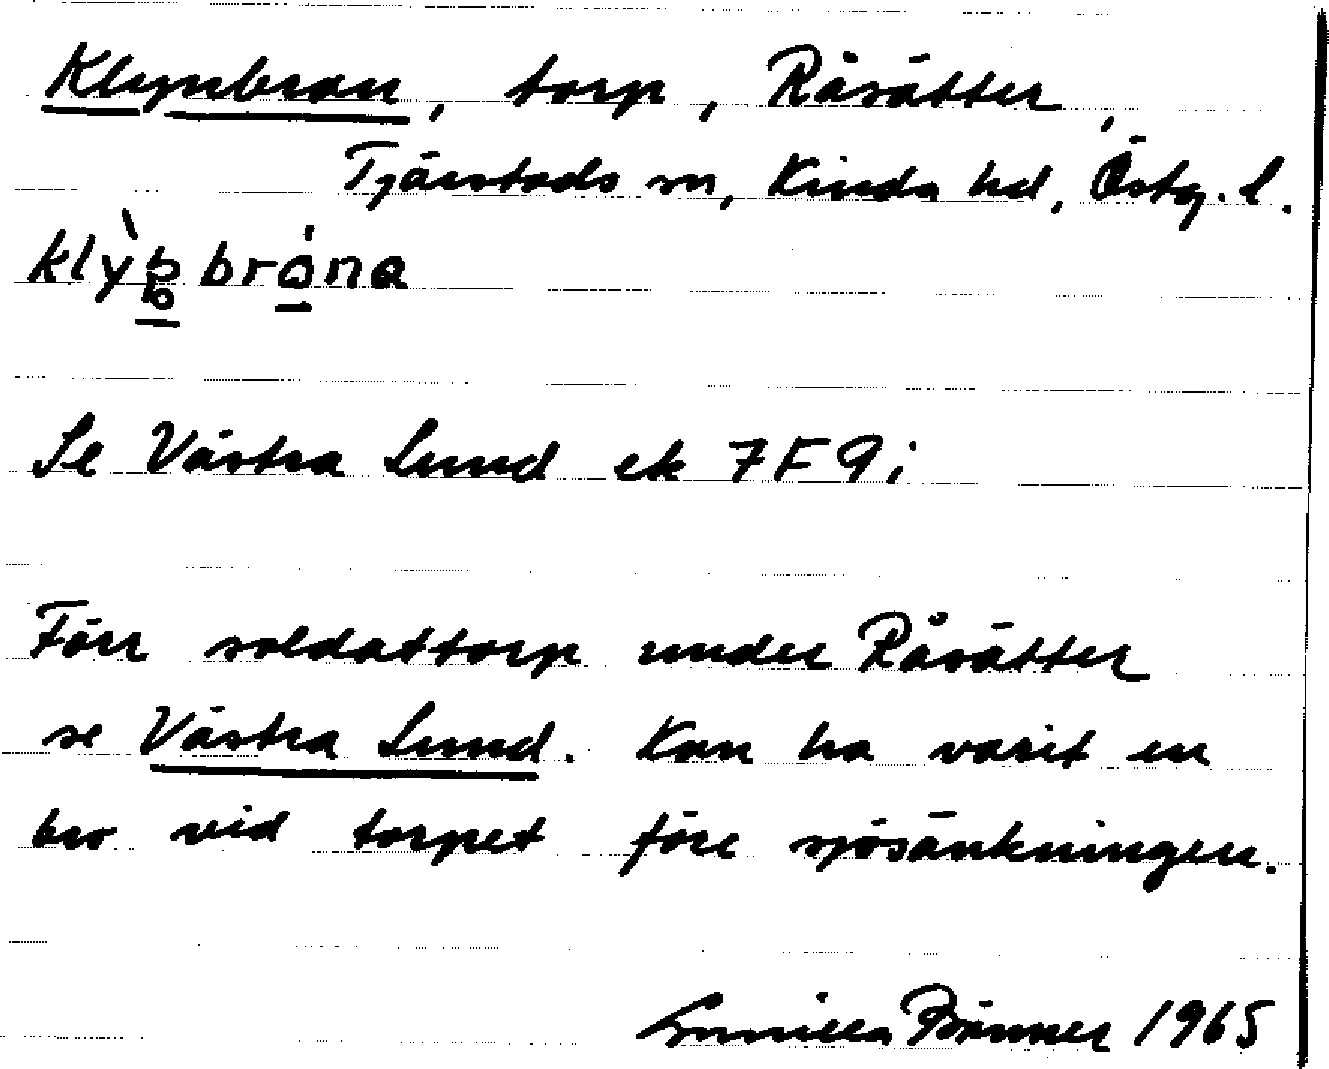 Klynbron, torp, Råsätter,
Tjärstads sn, Kinda hd, Östg. l.
Se Västra Lund ek 7F9i
Förr soldattorp under Råsätter
se Västra Lund. Kan ha varit en
bro vid torpet före sjösänkningen.
1965